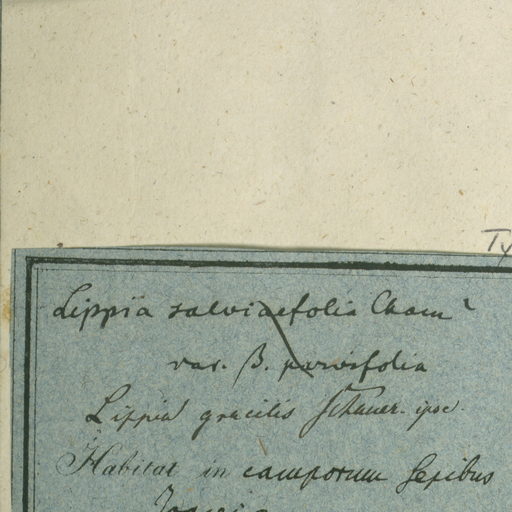 Ty
Lippia salviaefolia Cham?
var. β. parvifolia
Lippia gracilis Schauer. ipse.
Habitat in camporum sepibus